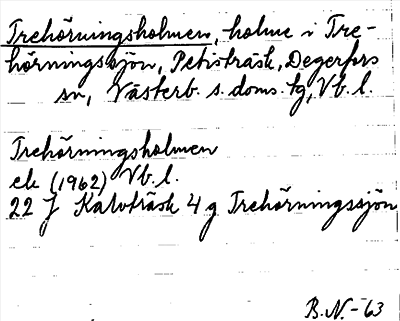 Trehörningsholmen, holme i Tre-
hörningssjön, Petisträsk, Degerfors
sn, Västerb. s. doms. tg, Vb. l.
Trehörningsholmen
ek (1962) Vb. l.
22 J Kalvträsk 4 g Trehörningssjön
B.N. -63